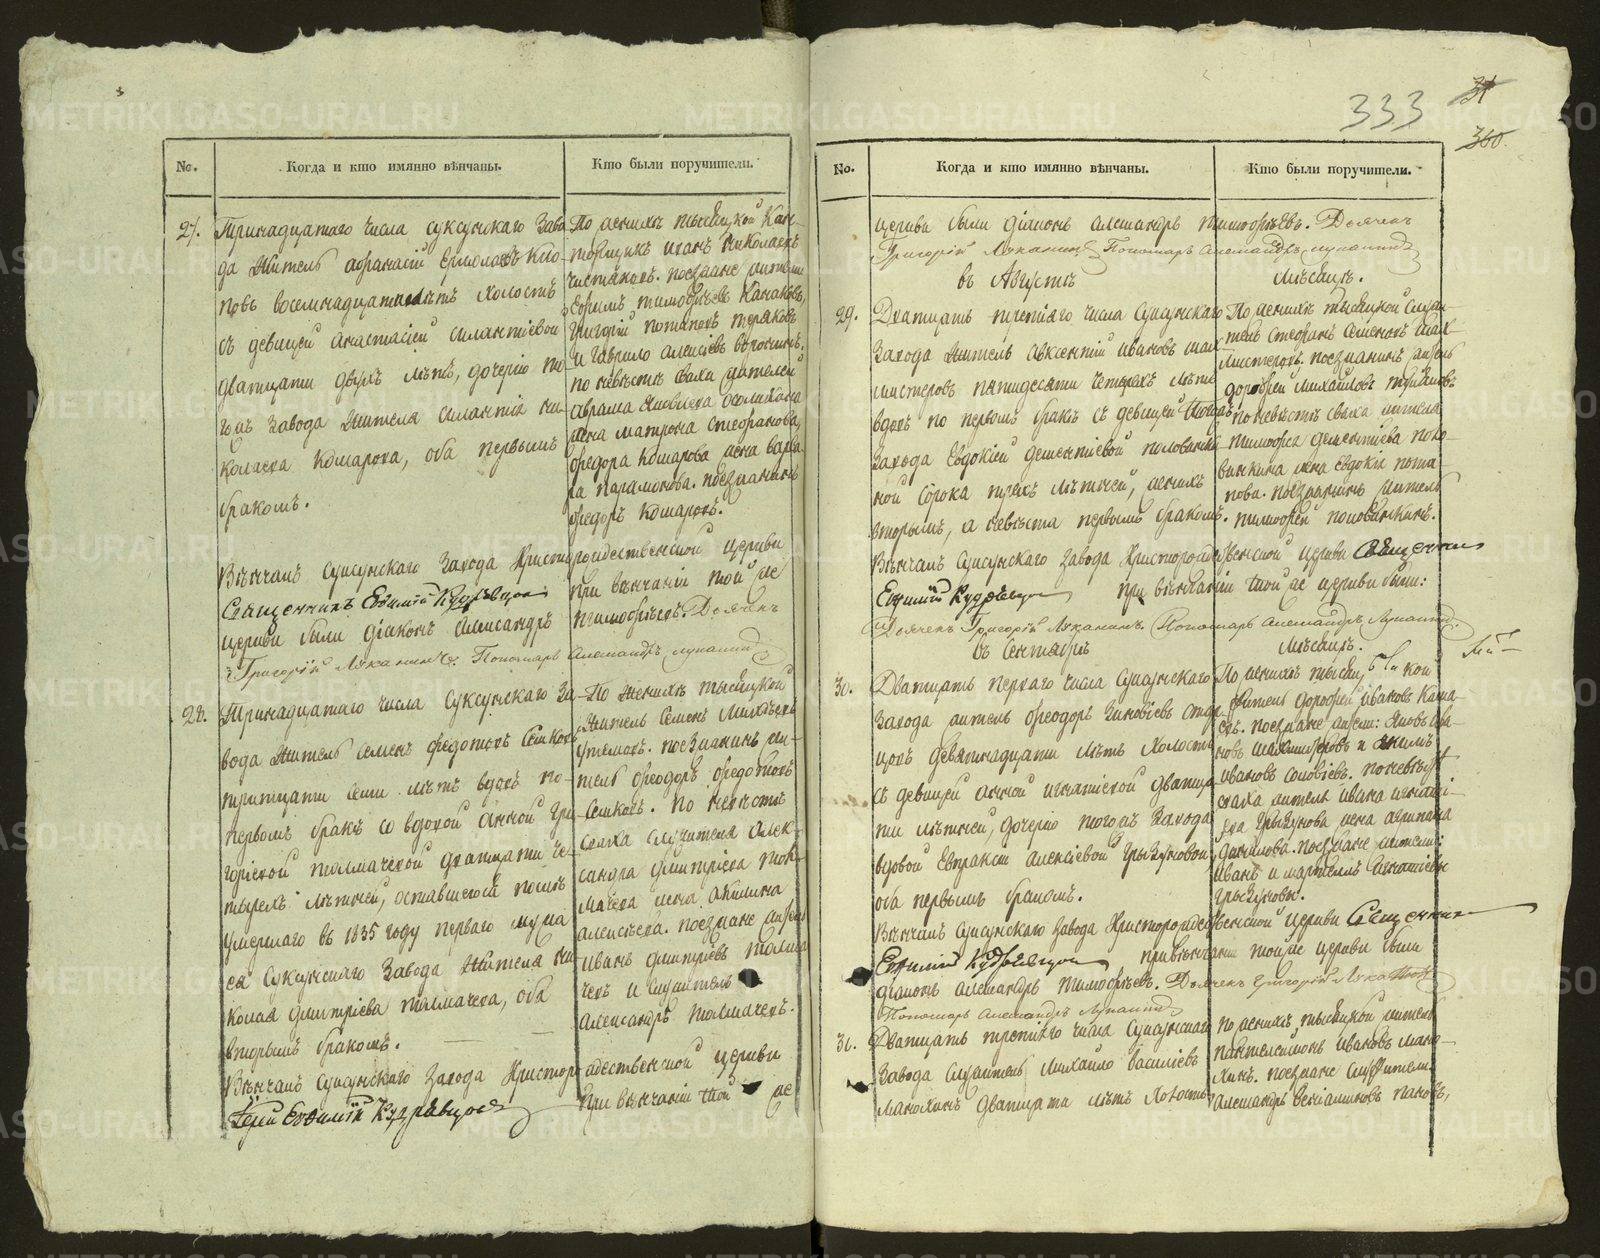 No. Когда и кто имянно вѣнчаны. Кто были поручители.
27. Тринадцатаго числа Суксунскаго заво
да житель Афанасий Ермолаевъ
повъ восемнадцати лѣтъ холостъ
съ девицей Анастасіей Силантіевой
дватцати двухъ лѣтъ, дочерію то
гожъ завода жителя Силантія Ни
колаева Кошарова, оба первымъ
бракомъ.
По женихѣ тысяцкой
Иванъ Николаевъ
Чистяковъ. поезжане жители
Ефимъ Тимофѣевъ
Григорій Потаповъ
и Гаврило Алексіевъ
по невѣстѣ сваха жителей
Аврама Яковлева
жена Матрона Стефанова,
Феодора Кошарова жена Варва
ра Парамонова. поезжанинъ
Феодоръ Кошаровъ.
Вѣнчалъ Суксунскаго завода Христорождественской церкви
Священникъ Евфимій Кудрявцовъ при вѣнчаніи той же
церкви были діаконъ Александръ Тимофѣевъ. Дьячекъ
Григорій Луканинъ. Пономарь Александръ Лупанинъ
28. Тринадцатаго числа Суксунскаго за
вода житель Семенъ Федотовъ Сешковъ
тритцати семи лѣтъ вдовъ по
первомъ бракѣ со вдовой Анной Гри
горіевой Толмачевой дватцати че
тырехъ лѣтней, оставшегося после
умершаго въ 1835 году перваго мужа
ея Суксунскаго завода жителя Ни
колая Дмитріева Толмачева, оба
вторымъ бракомъ.
По женихѣ тысяцкой
житель Семенъ
поезжанинъ жи
тель Феодоръ Федотовъ
Сешковъ. По невѣстѣ
сваха служителя Алек
сандра Дмитріева Тол
мачева жена Акилина
Алексѣева. поезжане житель
Иванъ Дмитріевъ Толма
чевъ и служитель
Александръ Толмачевъ.
Вѣнчалъ Суксунскаго завода Христорождественской церкви
Іерей Евфимій Кудрявцовъ при вѣнчаніи той же
333
31
360.
No. Когда и кто имянно вѣнчаны. Кто были поручители.
церкви были діаконъ Александръ Тимофѣевъ. Дьячекъ
Григорій Луканинъ Пономарь Александръ Лупанинъ
въ Августѣ мѣсяцѣ.
29. Дватцать третіяго числа Суксунскаго
завода житель Авксентій Ивановъ Шах
мистеровъ пятидесяти четырехъ лѣтъ
вдовъ по первомъ бракѣ съ девицей тогожъ
завода Евдокіей Дементіевой Половинки
ной сорока трехъ лѣтней, женихъ
вторымъ, а невѣста первымъ бракомъ.
По женихѣ тысяцкой служи
тель Стефанъ Семеновъ Шах
мистеровъ. поезжанинъ житель
Дорофей Михайловъ
по невѣстѣ сваха жителя
Тимофея Дементіева Поло
винкина жена Евдокія Пота
пова. поезжанинъ житель
Тимофей Половинкинъ.
Вѣнчалъ Суксунскаго завода Христорождественской церкви Священникъ
Евфимій Кудрявцовъ при вѣнчаніи той же церкви были:
Дьячекъ Григорій Луканинъ. Пономарь Александръ Лупанинъ.
въ Сентябрѣ мѣсяцѣ.
30. Дватцать перваго числа Суксунскаго
завода житель Феодоръ Зиновіевъ
девятнадцати лѣтъ холостъ
съ девицей Анной Игнатіевой дватца
ти лѣтней, дочерію тогожъ завода
вдовой Евпраксіи Алексіевой Грызуновой
оба первымъ бракомъ.
По женихѣ тысяцкой
житель Дорофей Ивановъ
поезжане жители: Яковъ Ива
новъ Шахмистеровъ и
Ивановъ Соловіевъ. по невѣстѣ
сваха жителя Ивана Игнаті
ева Грызунова жена Акрипина
Данилова. поезжане жители:
Иванъ и Мартемій Игнатіевы
Грызуновы.
Вѣнчалъ Суксунскаго завода Христорождественской церкви Священникъ
Евфимій Кудрявцовъ при вѣнчаніи той же церкви были
діаконъ Александръ Тимофѣевъ. Дьячекъ Григорій Луканинъ
Пономарь Александръ Лупанинъ
31. Дватцать третіяго числа Суксунскаго
завода служитель Михайло Василіевъ
Манохинъ дватцати лѣтъ холостъ
По женихѣ тысяцкой житель
Пантелеймонъ Ивановъ Мано
хинъ. поезжане служители
Александръ Веніаминовъ Пановъ,
METRIKI.GASO-URAL.RU